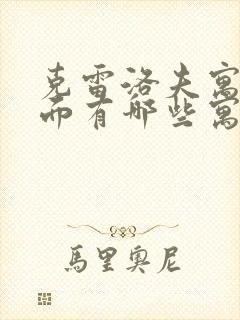 克雷洛夫寓
而有哪些寓
馬里奧尼